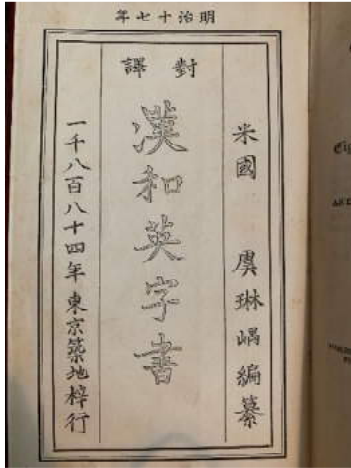 明治十七年
米國 虞琳嵎編纂
對譯
漢和英字書
一千八百八十四年東京築地梓行